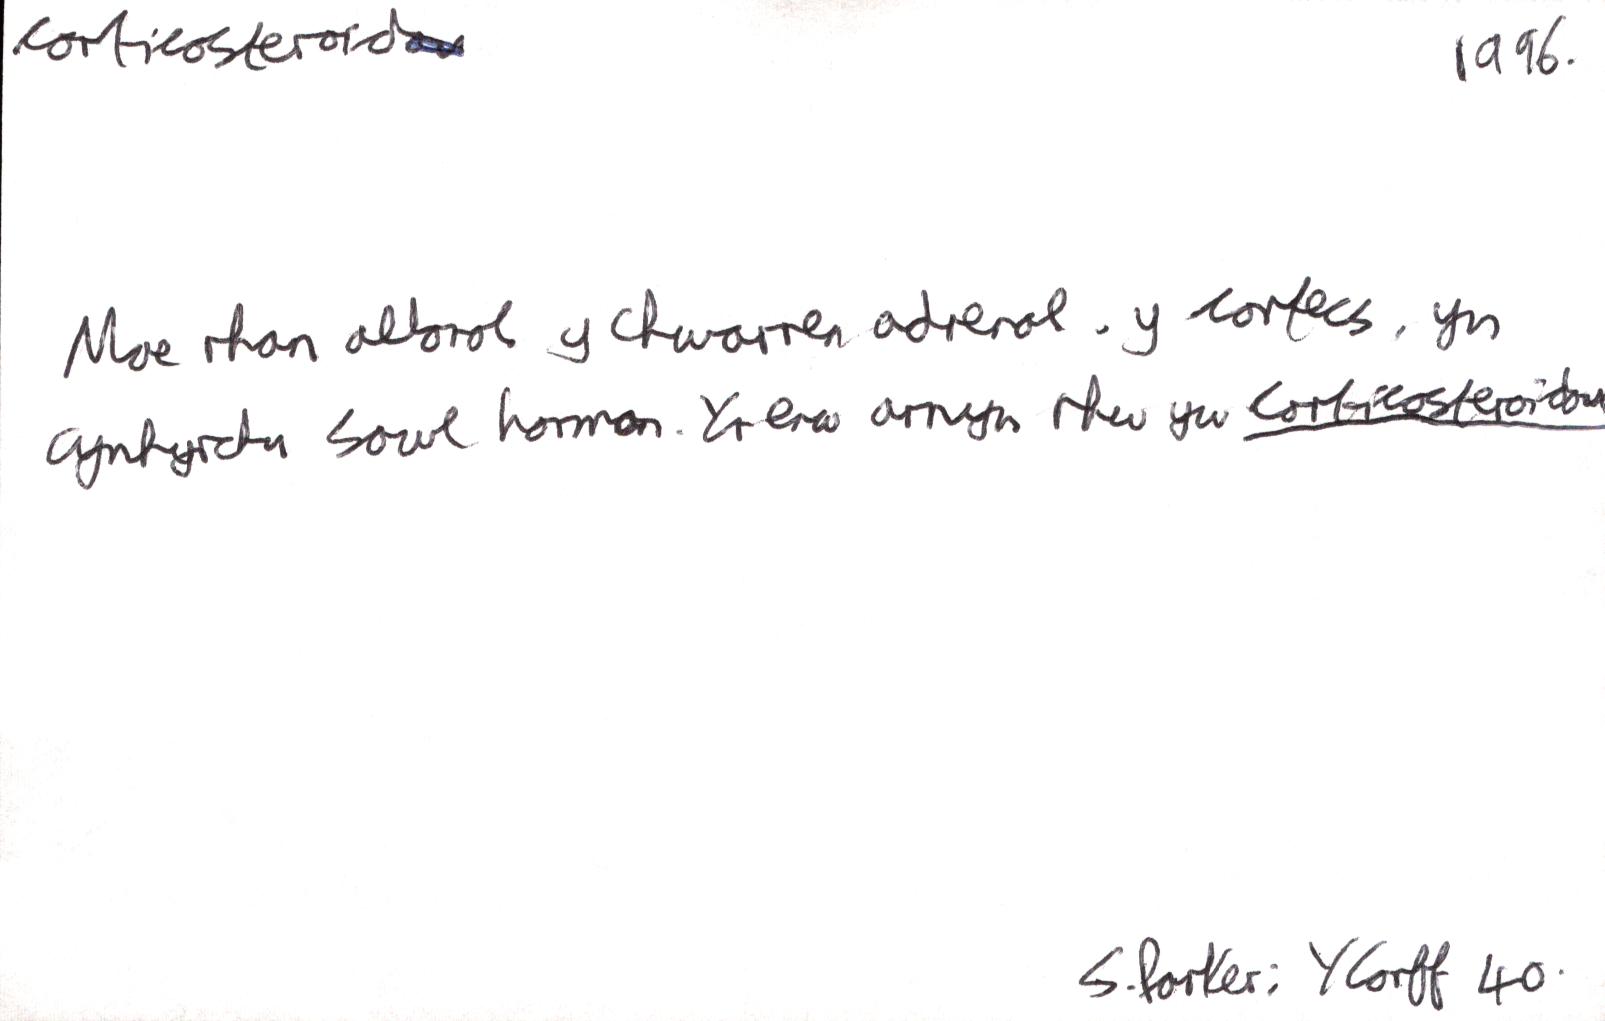 corticosteroid
1996.
Mae rhan allanol y chwarren adrenal, y cortecs, yn
cynhyrchu sawl hormon. Yr enw arnyn rhw yw corticosteroidau
S. Parker: Y Corff 40.